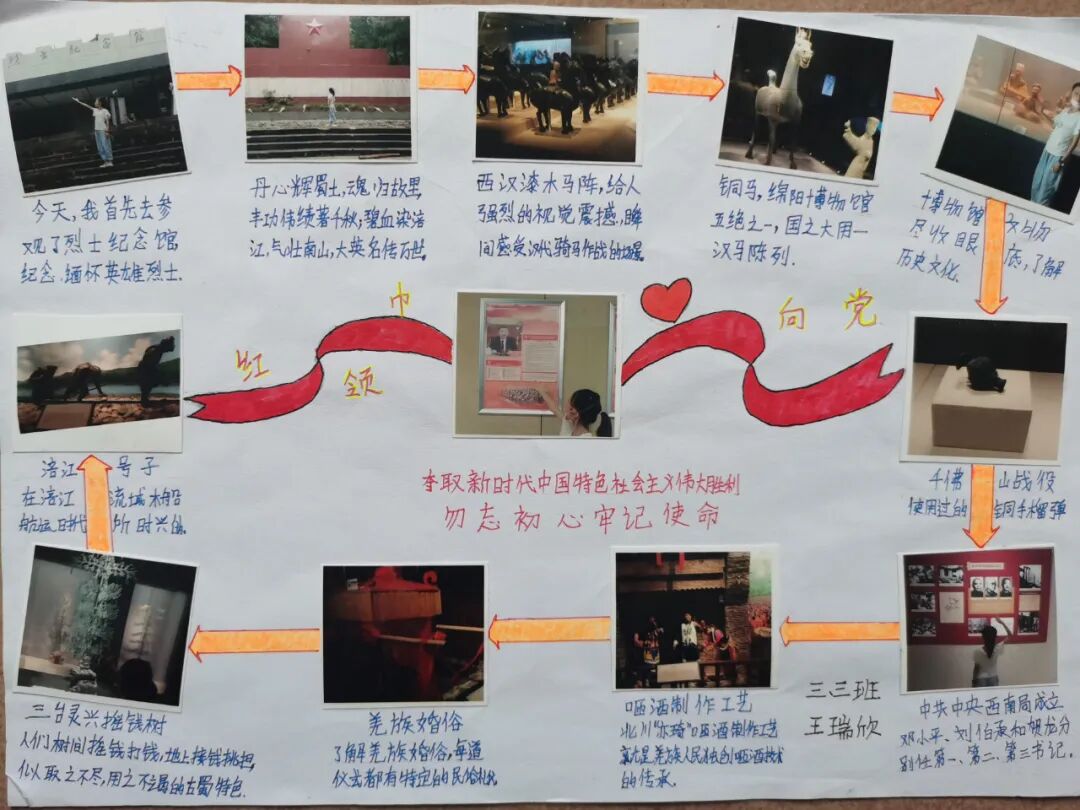 今天,我首先去参
观了烈士纪念馆,
纪念.缅怀英雄烈士.
丹心辉蜀土,魂归故里,
丰功伟绩著千秋,碧血染涪
江,气壮南山,大英名传万世.
西汉漆木马阵,给人
强烈的视觉震撼,瞬
间感受汉代骑马作战的场景.
铜马,绵阳博物馆
五绝之一,国之大用一
汉马陈列.
博物馆 文物
尽收眼 底,了解
历史文化.
红 领 巾
向 党
夺取新时代中国特色社会主义伟大胜利
勿忘初心牢记使命
千佛 山战役
使用过的 铜手榴弹
中共中央西南局成立
邓小平、刘伯承和贺龙分
别任第一、第二、第三书记.
三.三班
王瑞欣
咂酒制作工艺
北川“亦琦”咂酒制作工艺
就是羌族人民独创咂酒技术
的传承.
羌族婚俗
了解羌族婚俗,每道
仪式都有特定的民俗礼仪
三台灵兴摇钱树
人们树间摇钱打钱,地上接钱挑担,
似取之不尽,用之不竭的古蜀特色.
涪江 号子
在涪江 流域木船
航运时代 所时兴